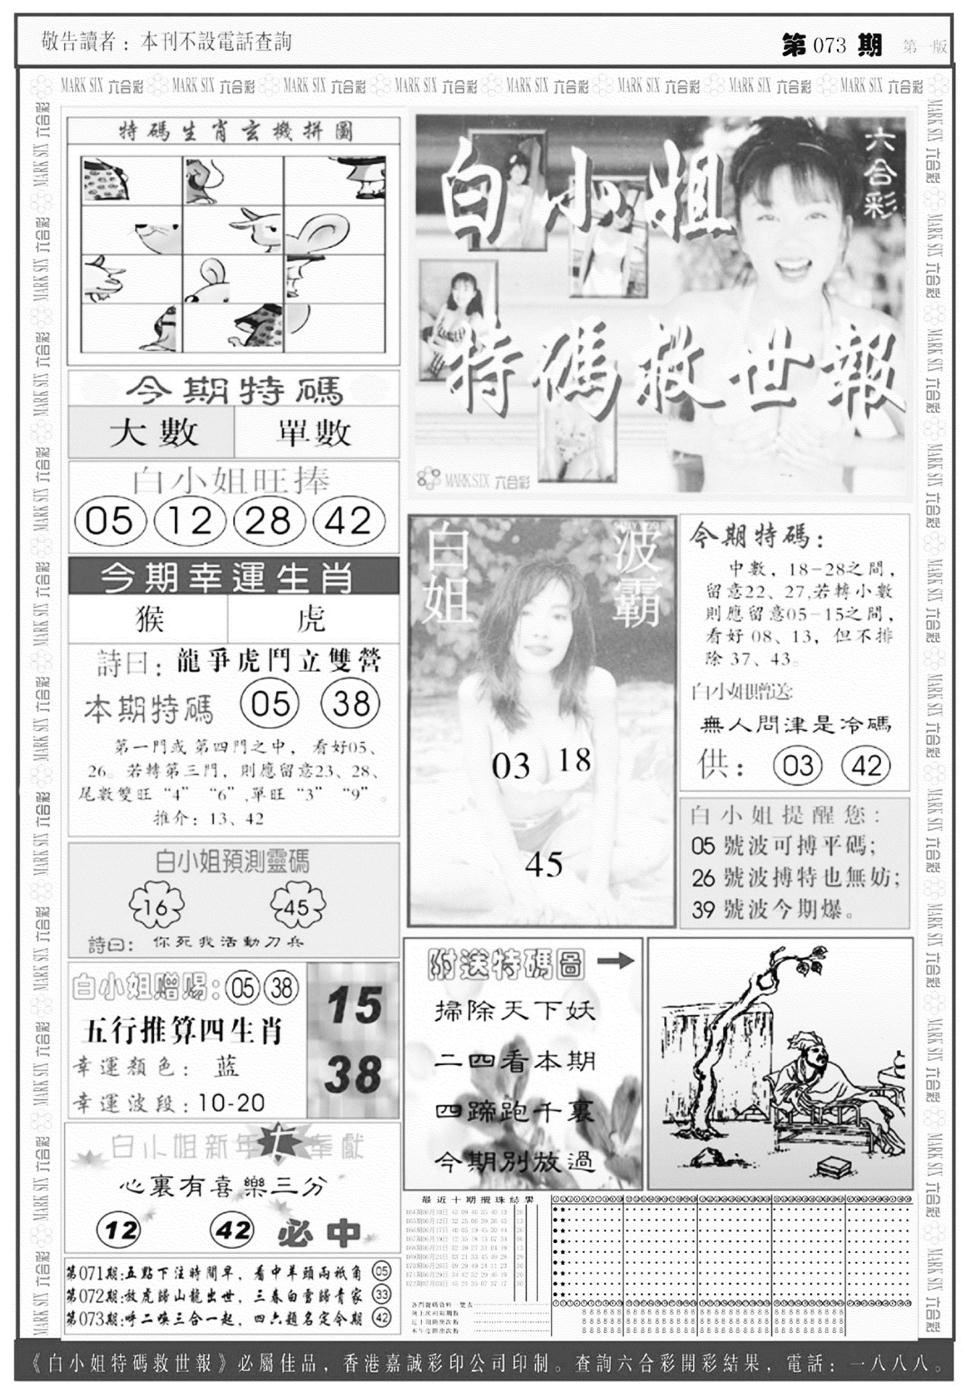 敬告讀者：本刊不設電話查詢
第 073 期 第一版
MARK SIX 六合彩 MARK SIX 六合彩 MARK SIX 六合彩 MARK SIX 六合彩 MARK SIX 六合彩 MARK SIX 六合彩 MARK SIX 六合彩 MARK SIX 六合彩
特碼生肖玄機拼圖
今期特碼
大數 單數
白小姐旺捧
05 12 28 42
今期幸運生肖
猴 虎
詩曰：龍爭虎鬥立雙營
本期特碼 05 38
第一門或第四門之中，看好05、
26。若轉第三門，則應留意23、28、
尾數雙旺“4”“6”,單旺“3”“9”。
推介：13、42
白小姐預測靈碼
16 45
詩曰：你死我活動刀兵
白小姐贈賜：05 38
五行推算四生肖
幸運顏色：蓝
幸運波段：10-20
15
38
白小姐新年七奉獻
心裏有喜樂三分
12 42 必中
第071期:五點下注時間早，看中羊頭兩袛角 05
第072期:放虎歸山龍出世，三春白雪歸青家 33
第073期:呼二喚三合一起，四六題名定今期 42
六合彩
白小姐
特碼救世報
MARK SIX 六合彩
白姐
波霸
03 18
45
今期特碼：
中數，18-28之間，
留意22、27,若轉小數
則應留意05-15之間，
看好 08、13，但不排
除 37、43。
白小姐贈送:
無人問津是冷碼
供：03 42
白小姐提醒您：
05 號波可搏平碼；
26 號波搏特也無妨；
39 號波今期爆。
附送特碼圖
掃除天下妖
二四看本期
四蹄跑千裏
今期別放過
最近十期攪珠結果
《白小姐特碼救世報》必屬佳品，香港嘉誠彩印公司印制。查詢六合彩開彩結果，電話：一八八八。